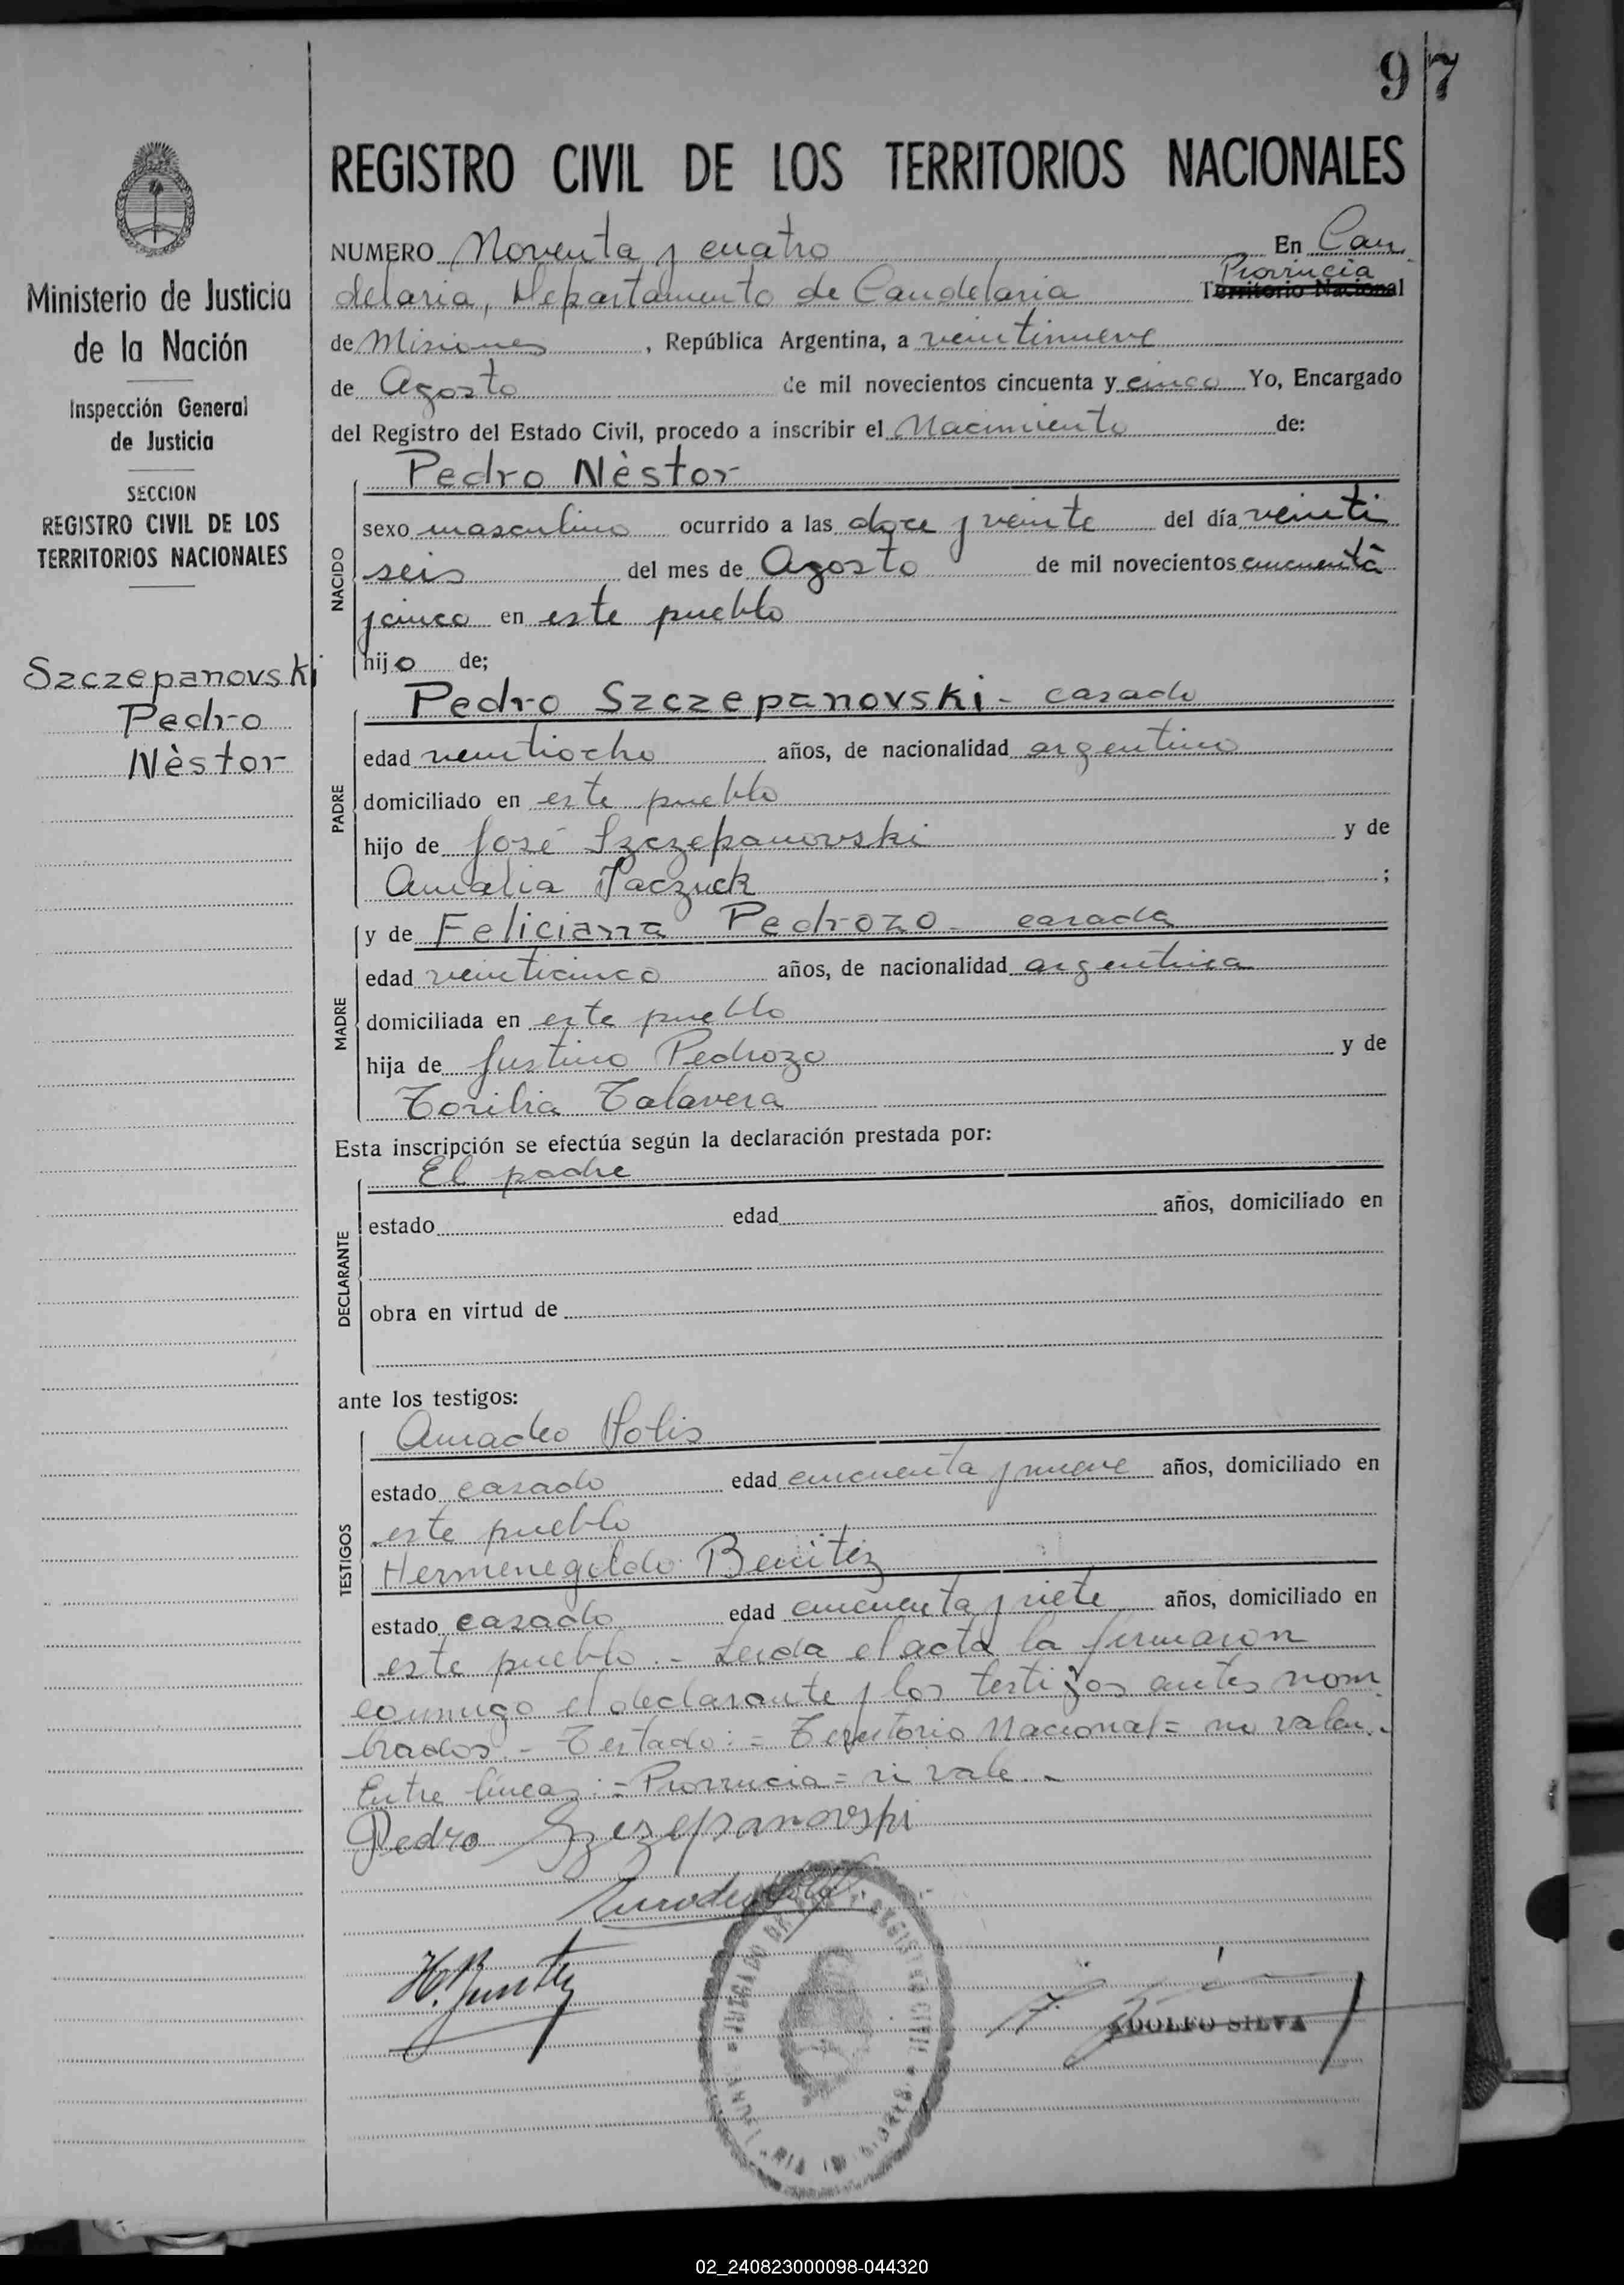 97
REGISTRO CIVIL DE LOS TERRITORIOS NACIONALES
Ministerio de Justicia
de la Nación
Inspección General
de Justicia
SECCION
REGISTRO CIVIL DE LOS
TERRITORIOS NACIONALES
Szczepanovski
Pedro
Nèstor
NUMERO Noventa y cuatro En Can
delaria, Departamento de Candelaria Provincia Territorio Nacional
de Misiones, República Argentina, a veintinueve
de Agosto de mil novecientos cincuenta y cinco Yo, Encargado
del Registro del Estado Civil, procedo a inscribir el Nacimiento de:
NACIDO
Pedro Nèstor
sexo masculino ocurrido a las doce y veinte del día veinti
seis del mes de Agosto de mil novecientos cincuenta
y cinco en este pueblo
hijo de;
PADRE
Pedro Szczepanovski - casado
edad veintiocho años, de nacionalidad argentino
domiciliado en este pueblo
hijo de José Szczepanovski y de
Amalia ;
MADRE
y de Feliciana Pedrozo - casada
edad veinticinco años, de nacionalidad argentina
domiciliada en este pueblo
hija de Justino Pedrozo y de
Torilia Talavera
Esta inscripción se efectúa según la declaración prestada por:
DECLARANTE
El padre
estado edad años, domiciliado en
obra en virtud de
ante los testigos:
TESTIGOS
Amadeo
estado casado edad cincuenta y nueve años, domiciliado en
este pueblo
Hermenegildo Benitez
estado casado edad cincuenta y siete años, domiciliado en
este pueblo.- Leida el acta la firmaron
conmigo el declarante y los testigos antes nom
brados.- Testado:= Territorio Nacional= no valen.-
Entre lineas:= Provincia= si vale.-
Pedro Szczepanovski
H. Benitez
JUZGADO DE
ADOLFO SILVA
02_240823000098-044320